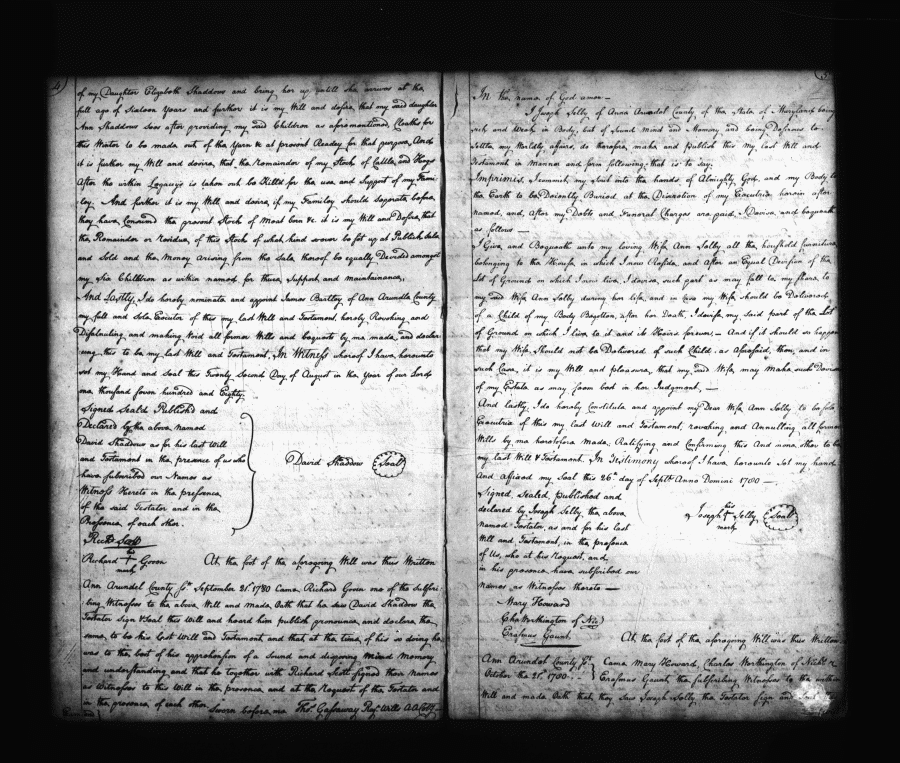 4
of my Daughter Elizabeth Shaddows and bring her up untill she arrives at the
full age of Sixteen Years and further it is my Will and desire, that my said daughter
Ann Shaddows Sees after providing my said Children as aforementioned, Cloaths for
this Winter to be made out of the Yarn &c at present Ready for that purpose, And
it is further my Will and desire, that the remainder of my Stock of Cattle, and Hoggs
After the within Legacuys is taken out be Killd for the use and Support of my Fami-
ley. And further it is my Will and desire, if my Familey should Separate before
they have Consumd the present Stock of Meat Corn &c. it is my Will and Desire, that
the Remainder or residue, of this Stock of what kind soever be set up at Publick Sale
and Sold and the Money Arising from the Sale thereof be equally Devided amongst
my Six Childdren as within named for there Support and maintainance,
And Lastly, I do hereby nominate and appoint James Barttey of Ann Arundle County
my full and Sole Executor of this my last Will and Testament, hereby Revoking and
Disallowing and making Void all former Wills and bequests by me made, and declar-
ing this to be my last Will and Testament, In Witness whereof I have hereunto
set my Hand and Seal this Twenty Second Day of August in the Year of our Lord
one thousand seven hundred and Eighty.
Signed Seald Published and
Declared by the above named
David Shaddows as for his last Will
and Testament in the presence of us who
have subscribed our Names as
Witness Hereto in the pressence
of the said Testator and in the
Pressence, of each other.
David Shaddow Seal
Richd. Scott
his
Richard + Goven
mark
At the foot of the aforegoing Will was thus Written
Ann Arundel County Sst. September 21st. 1780 Came Richard Goven one of the Subscri-
bing Witnesses to the above Will and made Oath that he saw David Shaddow the
Testator Sign & Seal this Will and heard him publish pronounce, and declare the
same, to be his Last Will and Testament and that at the time, of his so doing he
was to the best of his apprehension of a Sound and disposing mind Memory
and understanding and that he together with Richard Scott signed their Names
as Witnesses to this Will in the presence and at the Request of the Testator and
in the presence, of each other. Sworn before me Thos. Gassaway Regr. Wills A A Coty.
5
In the name of God amen
I Joseph Selby of Anna Arundel County, of the State of Maryland being
sick and Weak in Body, but of Sound Mind and Memory, and being Desirous to
Settle, my Worldly affairs, do therefore, make and publish this my Last Will and
Testament in Manner and form following, that is to say.
Imprimis. I commit my Soul into the hands of Almighty God, and my Body to
the Earth to be Decently Buried at the Direction of my Executrix herein after
named, and After my Debts and Funeral Charges are paid, I Devise, and bequeath
as follows
I Give and Bequeath unto my loving Wife Ann Selby all the houshold furniture
belonging to the House in which I now Reside, and After an Equal Devision of the
Lot of Ground on which I now live, I devise, such part as may fall to my share, to
my said Wife Ann Selby during her life, and in Case my Wife should be Delivered
of a Child of my Body Begotten, after her Death, I devise, my said part of the Lot
of Ground on which I live to it and its Heirs forever - And if it should so happen
that my Wife, Should not be Delivered of such Child, as aforesaid, then, and in
such Case, it is my Will and pleasure, that my said Wife, may Make such Devise
of my Estate as may seem best in her Judgment,
And lastly, I do hereby Constitute and appoint my Dear Wife Ann Selby to be sole
Executrix of this my last Will and Testament, revoking and Annulling all former
Wills by me heretofore Made, Ratifying and Confirming this And none other to be
my last Will & Testament. In Testimony whereof I have hereunto Set my hand
And affixed my Seal this 26th. day of Septbr. Anno Domini 1780
Signed, Sealed, published and
declared by Joseph Selby the above
named Testator, as and for his last
Will and Testament, in the presence
of Us, who at his Request, and,
in his presence have subscribed our
names, as Witnesses thereto
his
Joseph + Selby Seal
mark
Mary Howard
Chas Worthington of Nic
Erasmus Gaunt
At the foot of the aforegoing Will was thus Written
Ann Arundel County Sst. Came Mary Howard, Charles Worthington of Nichs. &
October the 21st. 1780. Erasmus Gaunt, the subscribing Witnesses to the within
Will and made Oath that they saw Joseph Selby, the Testator sign and